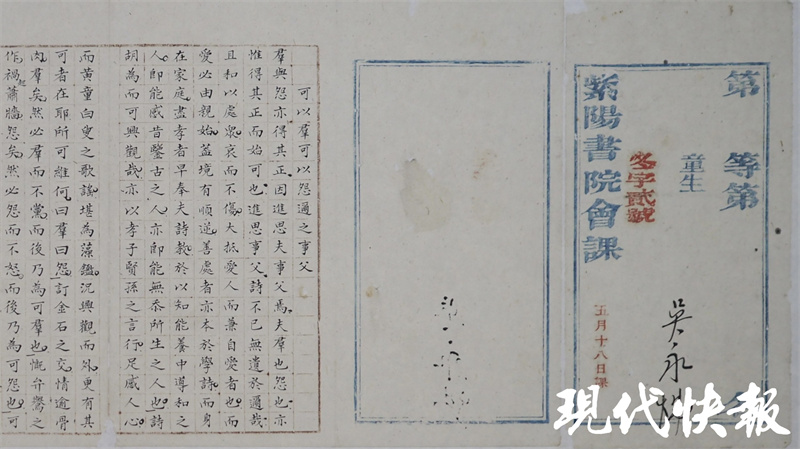 第 等第 名
童生
吳永
冬字貳號
五月十八日課
紫陽書院會課
可以羣可以怨邇之事父
羣與怨亦得其正因進思夫事父焉夫羣也怨也亦
惟得其正而始可也進思事父詩不已無遺於邇哉
且和以處衆哀而不傷大抵愛人而兼自愛者也而
愛必由親始葢境有順逆善處者亦本於學詩而身
在家庭盡孝者早奉夫詩教於以知能養中導和之
人即能感昔鑒古之人亦即能無忝所生之人也詩
胡為而可興觀哉亦以孝子賢孫之言行足感人心
而黃童白叟之歌謠堪為藻鑑況興觀而外更有其
可者在耶所可維何曰羣曰怨訂金石之交情逾骨
肉羣矣然必羣而不黨而後乃為可羣也慨弁鷽之
作禍起蕭牆怨矣然必怨而不怒而後乃為可怨也可
現代快報